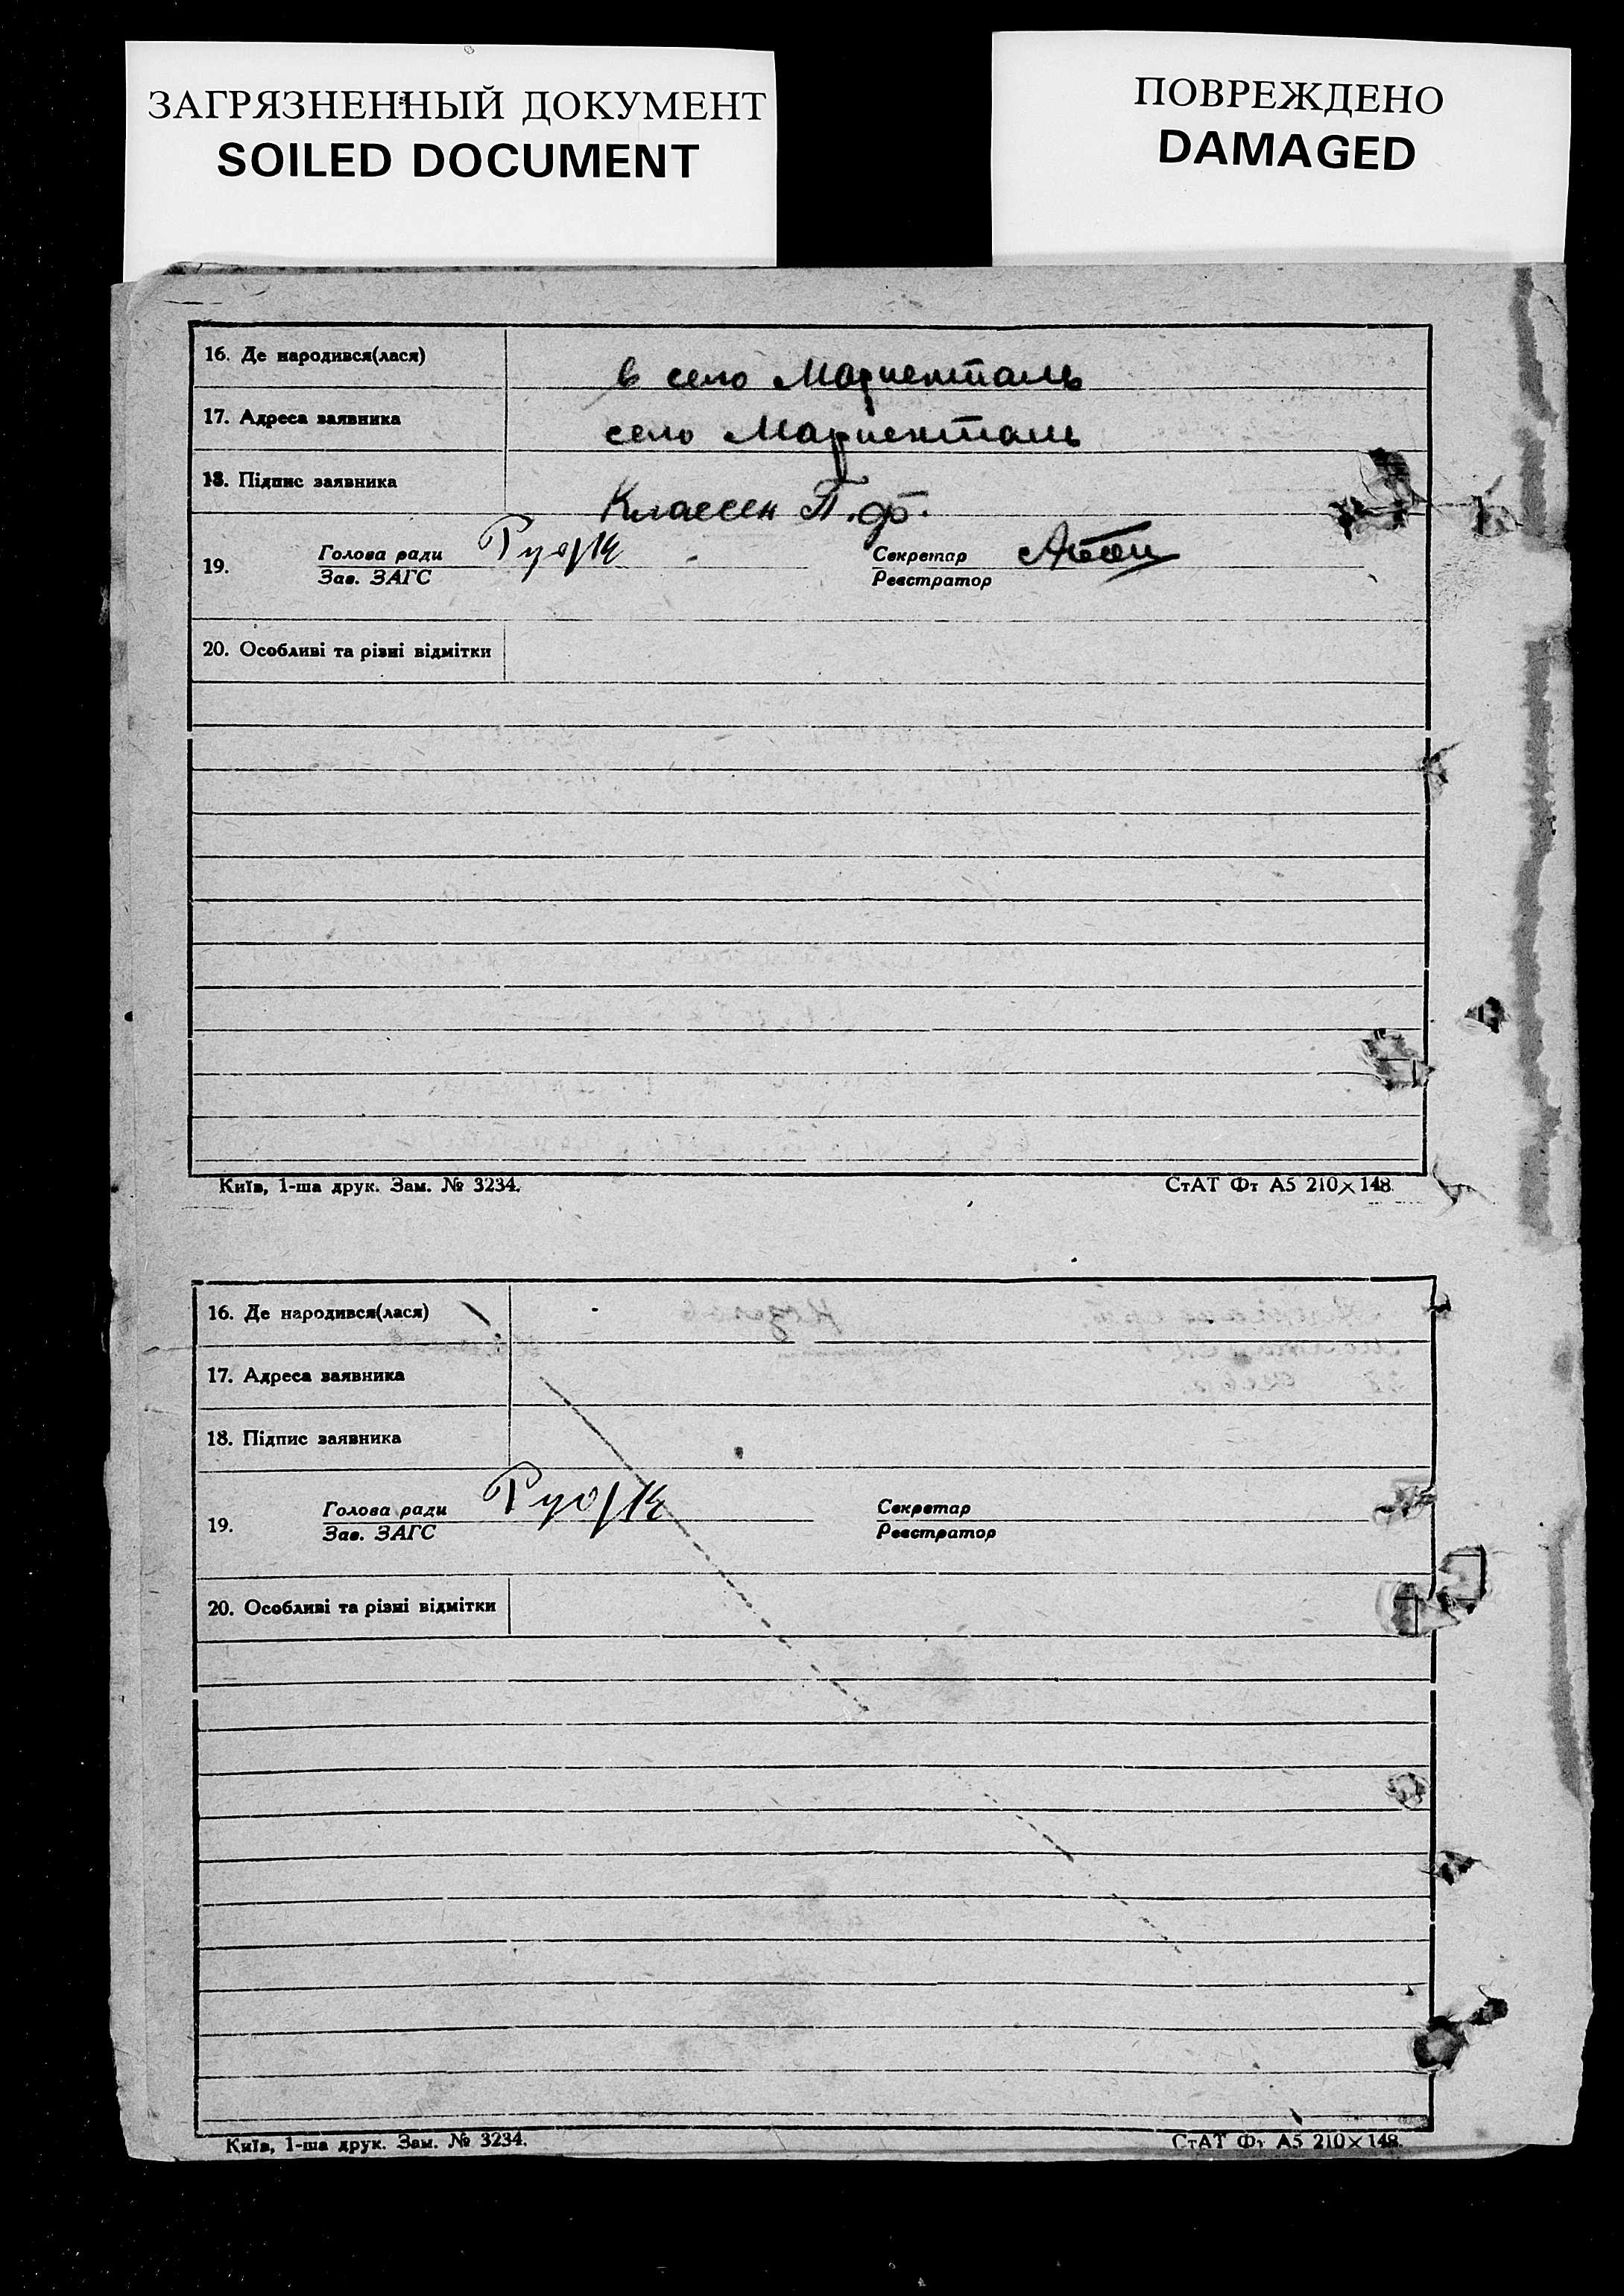 ЗАГРЯЗНЕННЫЙ ДОКУМЕНТ
SOILED DOCUMENT
ПОВРЕЖДЕНО
DAMAGED
16. Де народився(лася) в село Мариенталь
17. Адреса заявника село Мариенталь
18. Підпис заявника Классен П. Ф.
19. Голова ради Секретар
Зав. ЗАГС Реєстратор
20. Особливі та різні відмітки
Київ, 1-ша друк. Зам. № 3234. СтАТ Фт А5 210×148.
16. Де народився(лася)
17. Адреса заявника
18. Підпис заявника
19. Голова ради Секретар
Зав. ЗАГС Реєстратор
20. Особливі та різні відмітки
Київ, 1-ша друк. Зам. № 3234. СтАТ Фт А5 210×148.